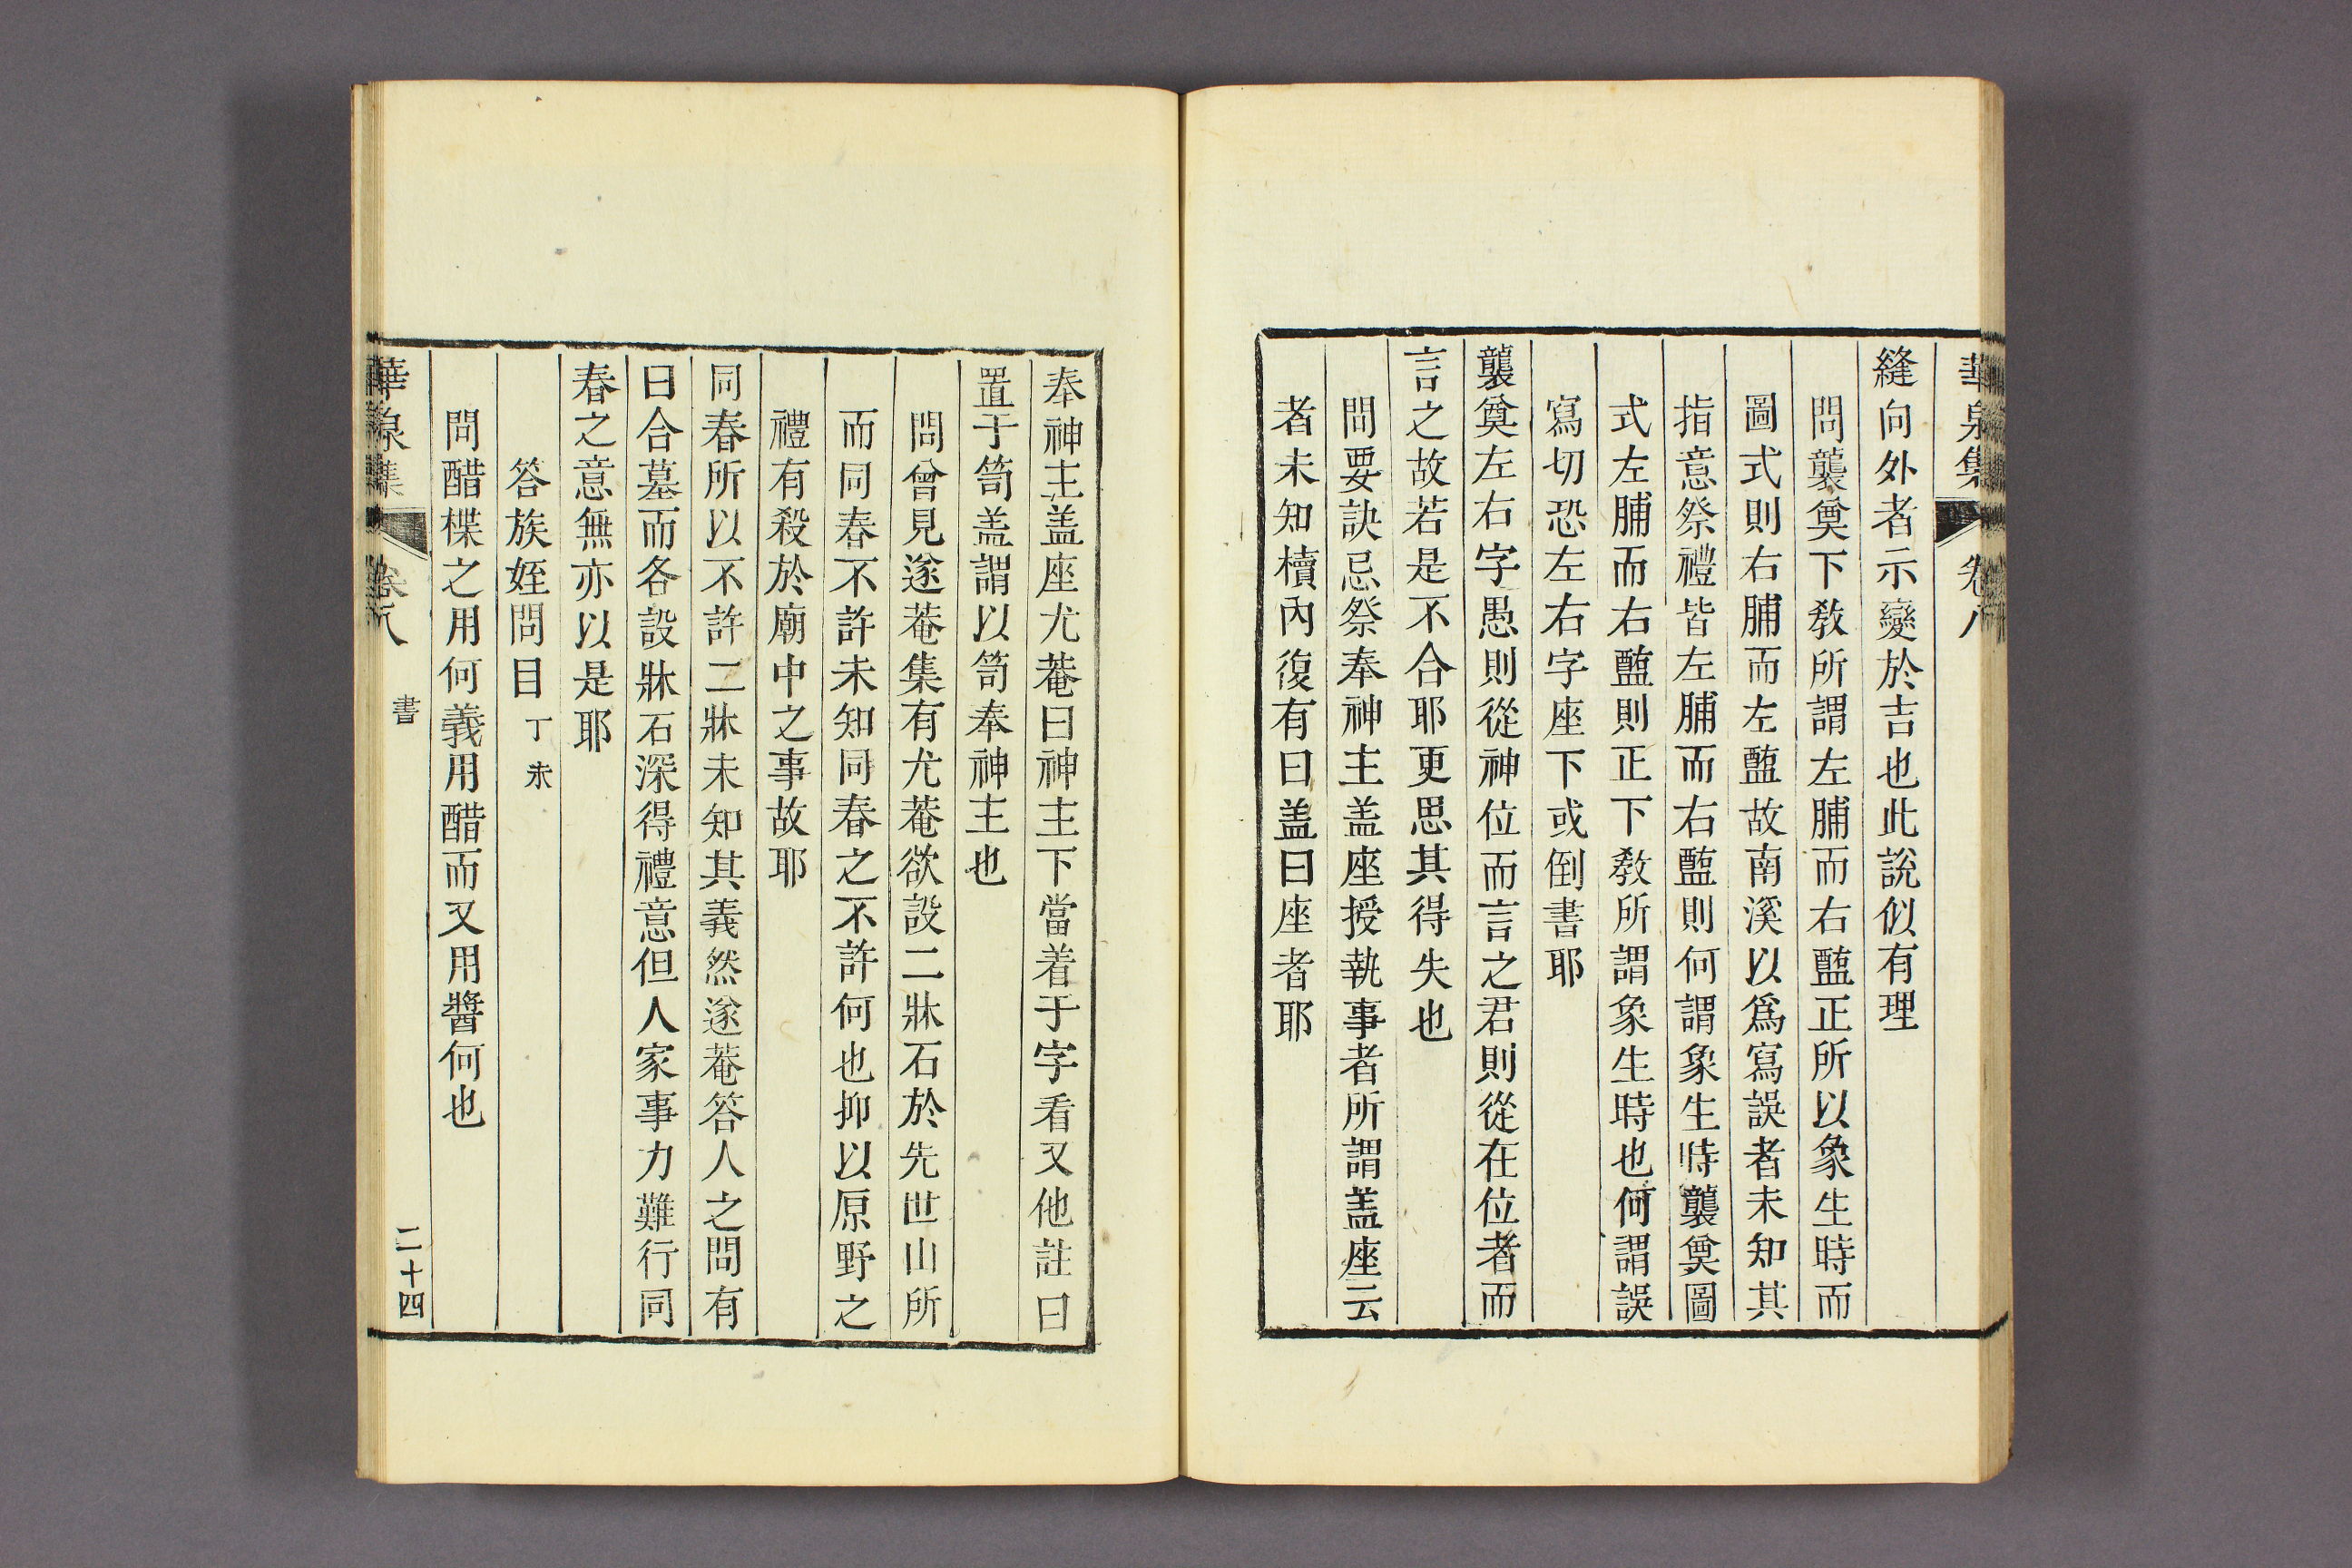 華泉集 卷八
縫向外者示變於吉也此說似有理
問襲奠下敎所謂左脯而右醢正所以象生時而
圖式則右脯而左醢故南溪以爲寫誤者未知其
指意祭禮皆左脯而右醢則何謂象生時襲奠圖
式左脯而右醢則正下敎所謂象生時也何謂誤
寫切恐左右字座下或倒書耶
襲奠左右字愚則從神位而言之君則從在位者而
言之故若是不合耶更思其得失也
問要訣忌祭奉神主盖座授執事者所謂盖座云
者未知櫝內復有曰盖曰座者耶
奉神主盖座尤菴曰神主下當着于字看又他註曰
置于笥盖謂以笥奉神主也
問曾見遂菴集有尤菴欲設二牀石於先世山所
而同春不許未知同春之不許何也抑以原野之
禮有殺於廟中之事故耶
同春所以不許二牀未知其義然遂菴答人之問有
曰合墓而各設牀石深得禮意但人家事力難行同
春之意無亦以是耶
答族姪問目 丁未
問醋楪之用何義用醋而又用醬何也
華泉集 卷八 書 二十四